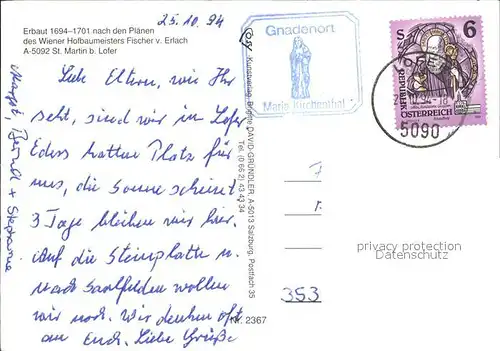 25.10.94
Erbaut 1694–1701 nach den Plänen
des Wiener Hofbaumeisters Fischer v. Erlach
A-5092 St. Martin b. Lofer
Liebe Eltern, wie Ihr
seht, sind wir in Lofer
Eders hatten Platz für
uns, die Sonne scheint
3 Tage bleiben wir hier.
Auf die Steinplatte u.
nach Saalfelden wollen
wir noch. Wir denken oft
an Euch. Liebe Grüße
Margot, Bernd + Stephanie
Kunstverlag Brigitte DAVID-GRÜNDLER, A-5013 Salzburg, Postfach 35
Tel. (0 66 2) 43 43 34
Nr. 2367
Gnadenort
Maria Kirchenthal
S 6
REPUBLIK
ÖSTERREICH
5090
353
privacy protection
Datenschutz